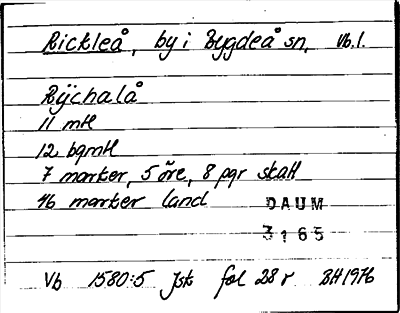 Rickleå, by i Bygdeå sn, Vb. l.
Rÿchalå
11 mtl
12 bqmtl
7 marker, 5 öre, 8 pgr skatt
46 marker land
DAUM
3165
Vb 1580:5 Jsk fol 28 r BH 1976